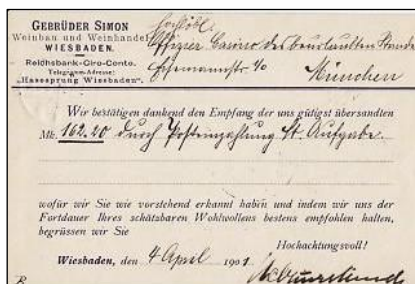 GEBRÜDER SIMON
Weinbau und Weinhandel
WIESBADEN.
Reichsbank-Giro-Conto.
Telegramm-Adresse:
„Hassesprung Wiesbaden“.
Offizier Casino des beurlaubten Stande
München
Wir bestätigen dankend den Empfang der uns gütigst übersandten
Mk. 162.20 durch Posteinzahlung lt. Aufgabe.
wofür wir Sie wie vorstehend erkannt haben und indem wir uns der
Fortdauer Ihres schätzbaren Wohlwollens bestens empfohlen halten,
begrüssen wir Sie
Hochachtungsvoll!
Wiesbaden, den 4 April 1901.